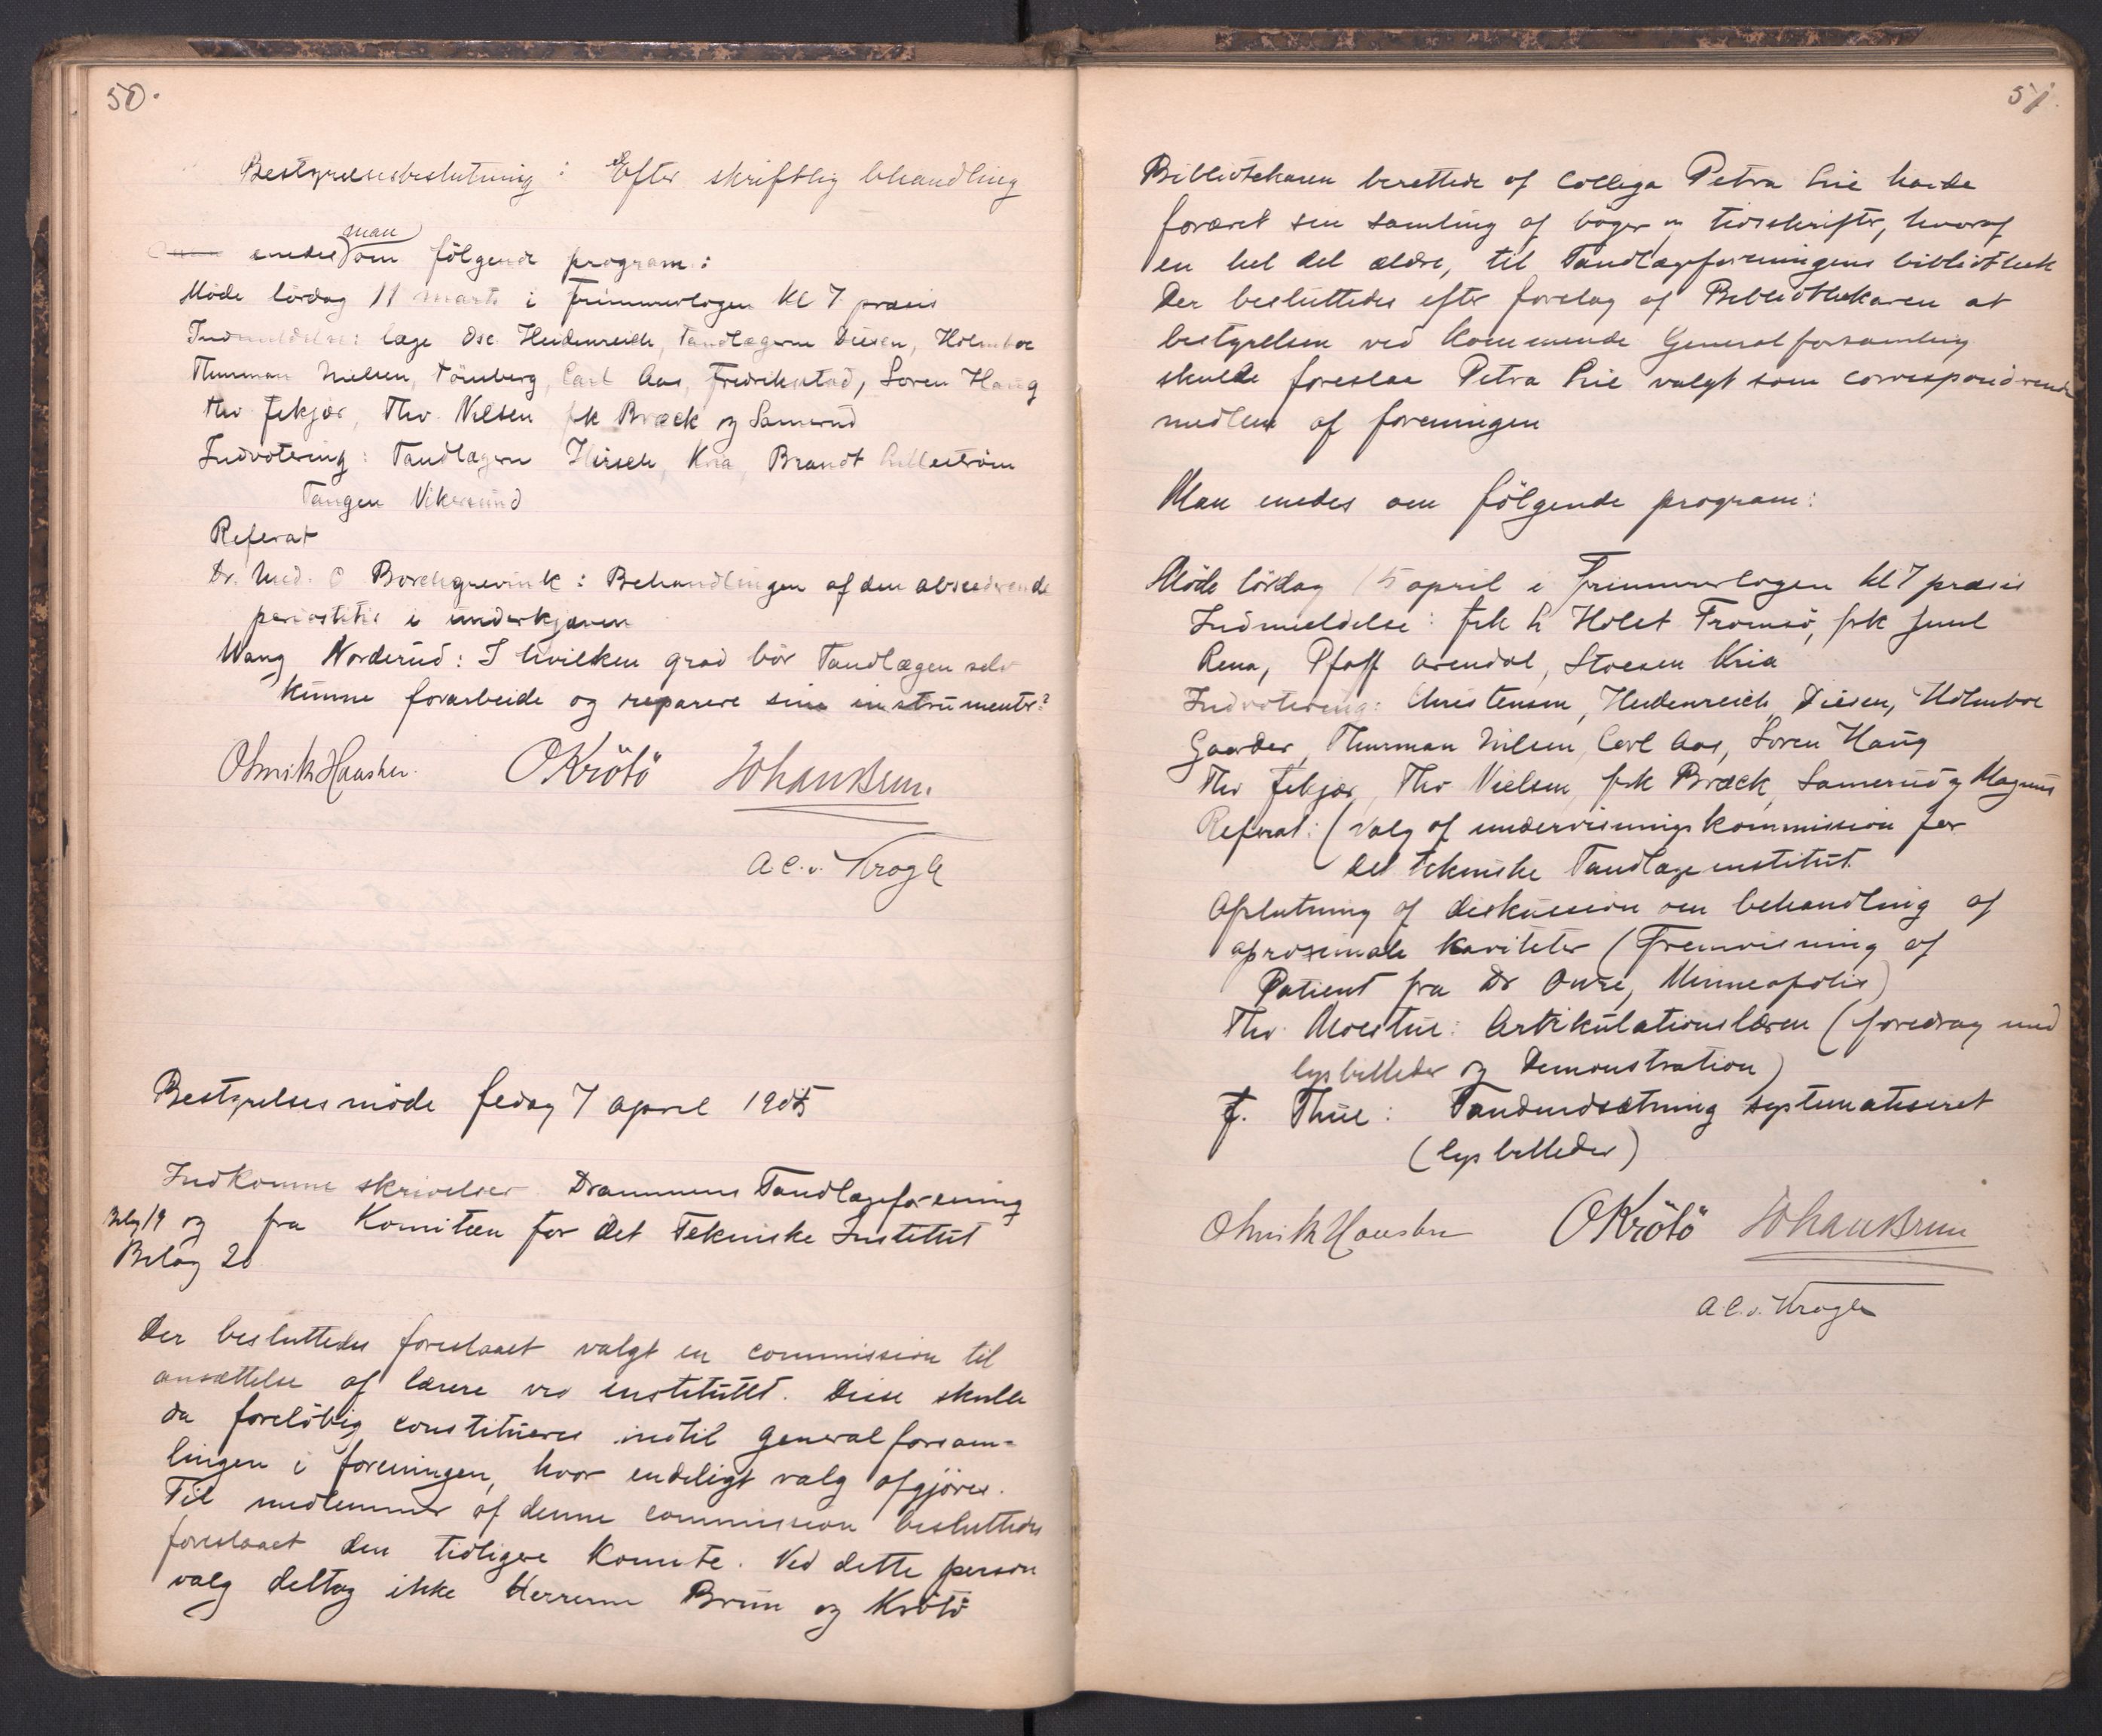 50.
Bestyrelsesbeslutning : Efter skriftlig behandling
man
enedes om følgende program:
Møde lørdag 11 marts i Frimurerlogen Kl 7 præcis
Indmeldelse: læge Osc. Heidenreich, Tandlægerne Diesen, Holmboe
Thurman Nielsen, Tönsberg, Carl Aas, Fredrikstad, Soren Haug
Thv Fekjær, Thv. Nilsen frk Bræck og Samerud
Indvotering: Tandlægerne Hirsch, Kria, Brandt Lilleström
Tangen Vikersund
Referat
Dr. Med. O Borchgrevink: Behandlingen af den absederende
periostitis i underkjæven
Wang Norderud: I hvilken grad bör Tandlægen selv
kunne forarbeide og reparere sine instrumenter?
O Krötö Johan Brun.
A.C.v. Krogh
Bestyrelsesmöde fedag 7 april 1905
Indkomne skrivelser Drammens Tandlægeforening
Bilag 19 og fra Komiteen for det Tekniske Institut
Bilag 20
Der besluttedes foreslaaet valgt en commission til
ansættelse af lærere ved instituttet. Disse skulle
da foreløbig constitueres indtil generalforsam-
lingen i foreningen, hvor endeligt valg afgjöres.
Til medlemmer af denne commission besluttedes
foreslaaet den tidligere Komite. Ved dette person
valg deltog ikke Herrerne Brun og Krötö
51.
Bibliotekaren berettede af Collega Petra Lie havde
foræret sin samling af böger og tidsskrifter, hvoraf
en hel del ældre, til Tandlægeforeningens bibliothek
Der besluttedes efter forslag af Bibliothekaren at
bestyrelsen ved kommende Generalforsamling
skulde foreslaa Petra Lie valgt som correspondrende
medlem af foreningen
Man enedes om fölgende program:
Möde lördag 15 april i Frimurerlogen kl 7 præcis
Indmeldelse: frk L Holst Tromsö, frk Juul
Rena, Pfaff Arendal, Stoesen Kria
Indvotering: Christensen, Heidenreich, Diesen, Holmboe
Gaarder, Thurman Nilsen, Carl Aas, Soren Haug
Thv Fekjær, Thv Nielsen, frk Bræck, Samerud og Magnus
Referat: (Valg af undervisningskommission for
det tekniske Tandlægeinstitut.
Afslutning af diskussion om behandling af
aproximale kaviteter (Fremvisning af
Patient fra Dr Owre, Minneapolis)
Thv. Moestue: Artikulationslæren (foredrag med
lysbilleder og Demonstration)
F. Thue: Tandudsætning systematiseret
(lysbilleder)
O Krötö Johan Brun
A.C.v. Krogh